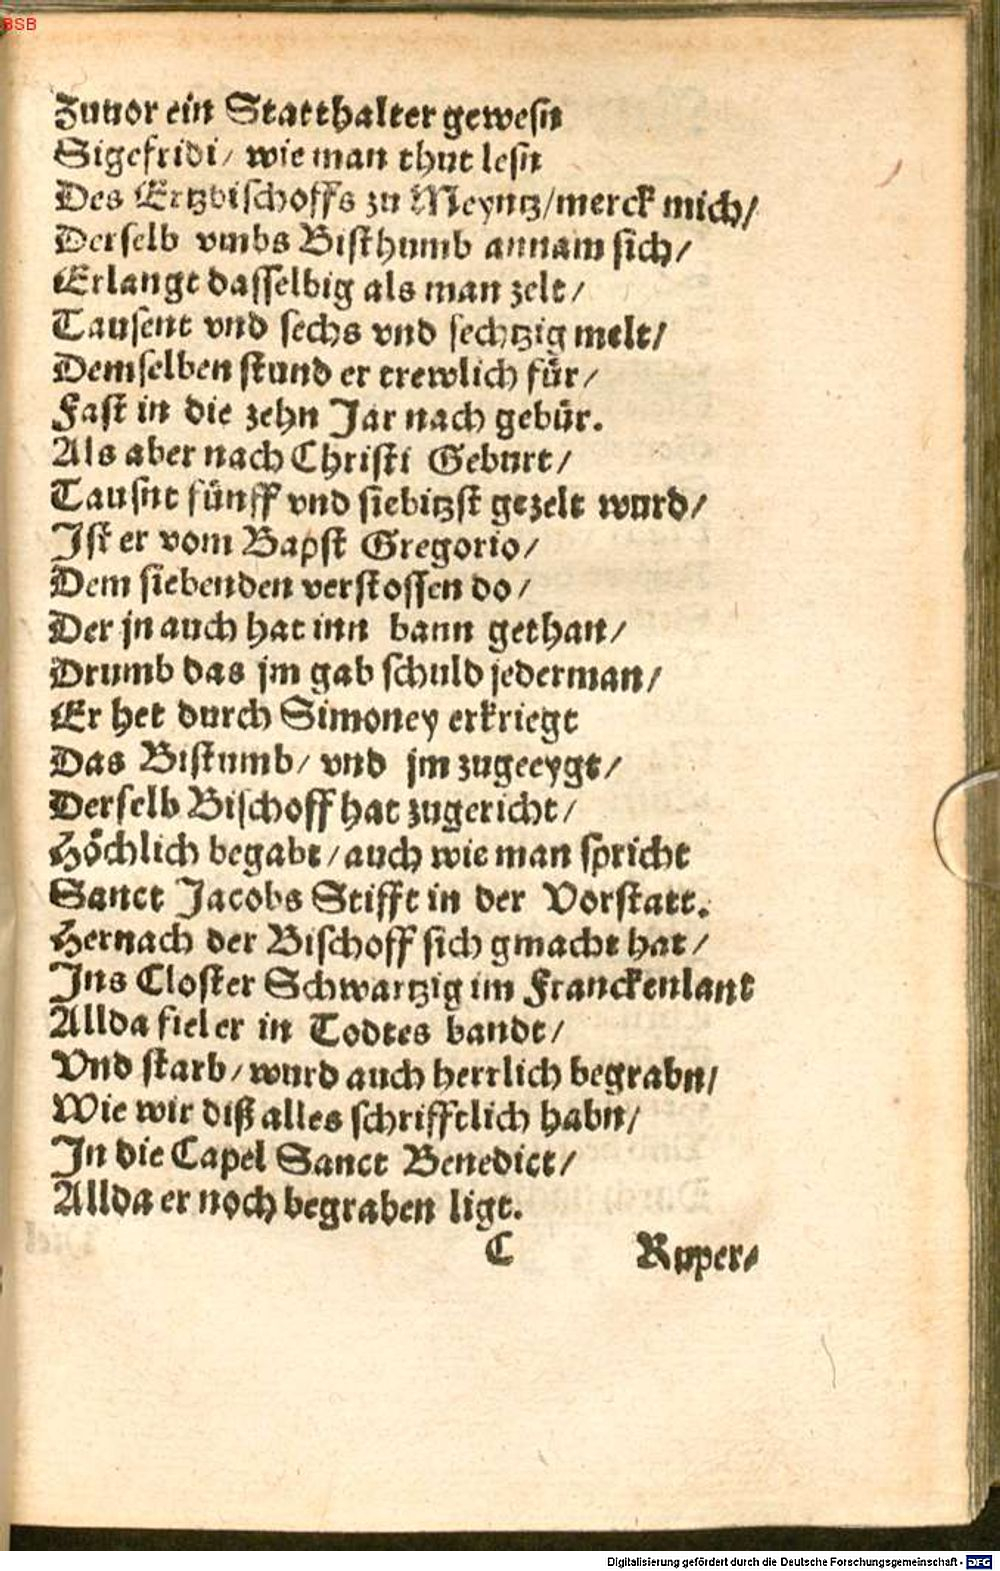 BSB
Zuuor ein Statthalter gewesn
Sigefridi/ wie man thut lesn
Des Ertzbischoffs zu Meyntz/merck mich/
Derselb vmbs Bisthumb annam sich/
Erlangt dasselbig als man zelt/
Tausent vnd sechs vnd sechtzig melt/
Demselben stund er trewlich für/
Fast in die zehn Jar nach gebür.
Als aber nach Christi Geburt/
Tausnt fünff vnd siebitzst gezelt wurd/
Ist er vom Bapst Gregorio/
Dem siebenden verstossen do/
Der jn auch hat inn bann gethan/
Drumb das jm gab schuld jederman/
Er het durch Simoney erkriegt
Das Bistumb/ vnd jm zugeeygt/
Derselb Bischoff hat zugericht/
Höchlich begabt/auch wie man spricht
Sanct Jacobs Stifft in der Vorstatt.
Hernach der Bischoff sich gmacht hat/
Ins Closter Schwartzig im Franckenlant
Allda fiel er in Todtes bandt/
Vnd starb/wurd auch herrlich begrabn/
Wie wir diß alles schrifftlich habn/
In die Capel Sanct Benedict/
Allda er noch begraben ligt.
C Ruper-
Digitalisierung gefördert durch die Deutsche Forschungsgemeinschaft - DFG